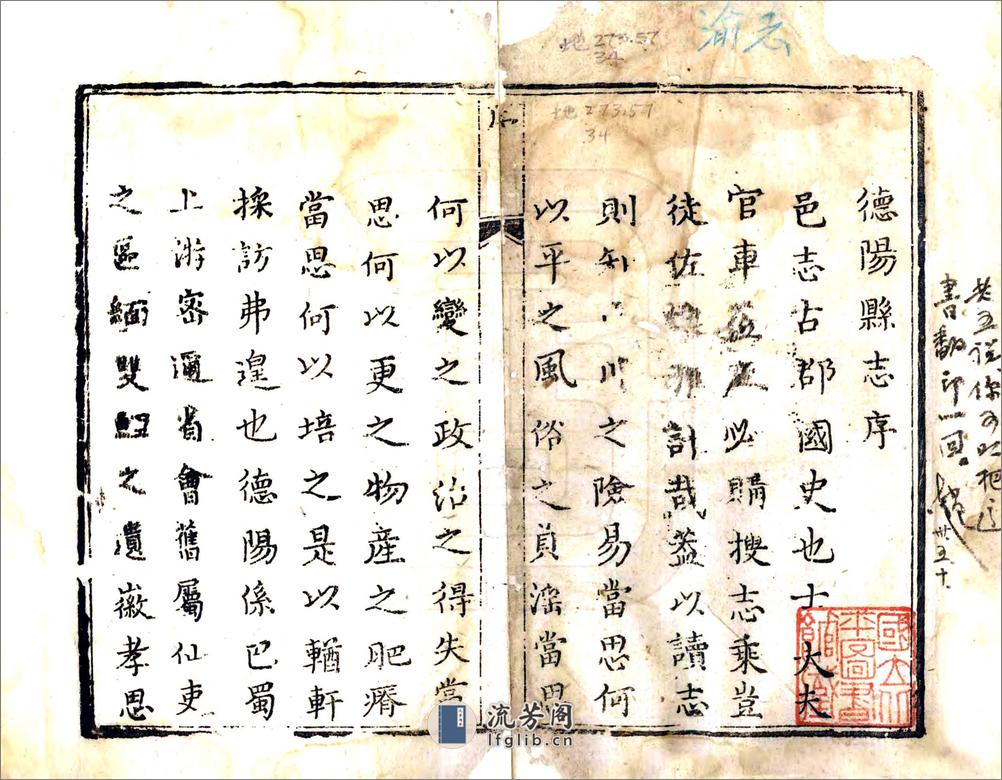 渝志
地 273.57
34
地 273.57
34
德陽縣志序
邑志古郡國史也士大夫
官車必購搜志乘豈
徒佐計哉蓋以讀志
則知之險易當思何
以平之風俗之貞淫當思
序
何以變之政治之得失當
思何以更之物產之肥瘠
當思何以培之是以輶軒
採訪弗遑也德陽係巴蜀
上游密邇省會舊屬仙吏
之區緬雙之遺徽孝思
書翻印一回
流芳阁
lfglib.cn